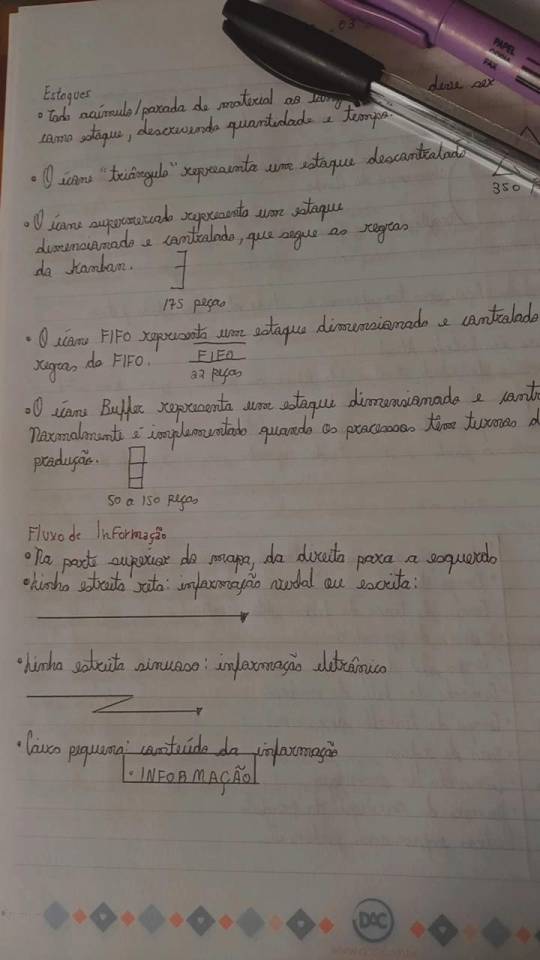 03
PAPEL
FAX
Estoques
• Todo acúmulo/parada de material ao deve ser
como estoque, descrevendo quantidade e tempo.
• O ícone "triângulo" representa um estoque descontrolado
350
• O ícone supermercado representa um estoque
dimensionado e controlado, que segue as regras
do Kanban.
175 peças
• O ícone FIFO representa um estoque dimensionado e controlado
regras do FIFO. FIFO
32 peças
• O ícone Buffer representa um estoque dimensionado e contr
Normalmente é implementado quando os processos têm turnos d
produção.
50 a 150 peças
Fluxo de Informação
• Na parte superior do mapa, da direita para a esquerda
• Linha estreita reta: informação verbal ou escrita:
• Linha estreita sinuosa: informação eletrônica
• Caixa pequena: conteúdo da informação
• INFORMAÇÃO
DAC